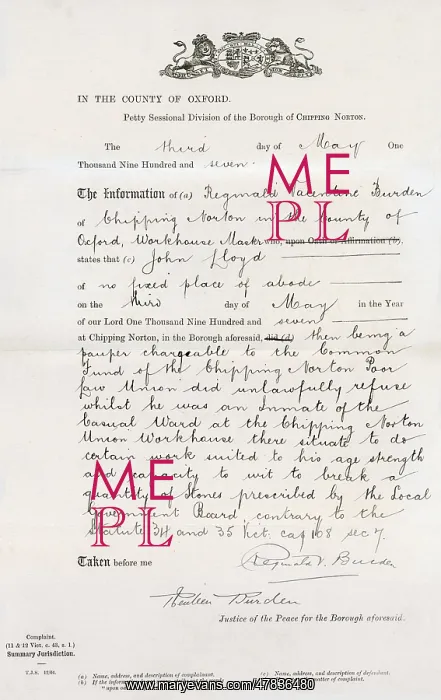 IN THE COUNTY OF OXFORD.
Petty Sessional Division of the Borough of CHIPPING NORTON.
The third day of May One
Thousand Nine Hundred and seven.
The Information of (a) Reginald Valentine Burden
of Chipping Norton in the County of
Oxford, Workhouse Master who, upon Oath or Affirmation (b),
states that (c) John Lloyd
of no fixed place of abode
on the third day of May in the Year
of our Lord One Thousand Nine Hundred and seven
at Chipping Norton, in the Borough aforesaid, did (d) then being a
pauper chargeable to the Common
Fund of the Chipping Norton Poor
Law Union did unlawfully refuse
whilst he was an Inmate of the
Casual Ward at the Chipping Norton
Union Workhouse there situate to do
certain work suited to his age strength
and capacity to wit to break a
quantity of Stones prescribed by the Local
Government Board contrary to the
Statute 34 and 35 Vict. cap 108 sec 7.
Taken before me
Reginald V. Burden
Burden
Justice of the Peace for the Borough aforesaid.
Complaint.
(11 & 12 Vict. c. 43, s. 1.)
Summary Jurisdiction.
(a) Name, address, and description of complainant.
(b) If the
"upon
(c) Name, address, and description of defendant.
matter of complaint.
ME
PL
ME
PL
www.maryevans.com/47896480